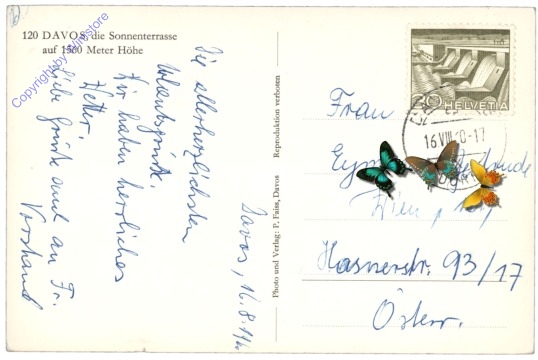 120 DAVOS, die Sonnenterrasse
auf 1560 Meter Höhe
Copyright by oldstore
Davos, 16.8.
Die allerherzlichsten
Urlaubsgrüße.
Wir haben herrliches
Wetter.
Liebe Grüße auch an Fr.
Vorstand
Photo und Verlag: P. Faiss, Davos Reproduktion verboten
HELVETIA
20
16.VIII.
Frau
Wien
Hasnerstr. 93/17
Österr.